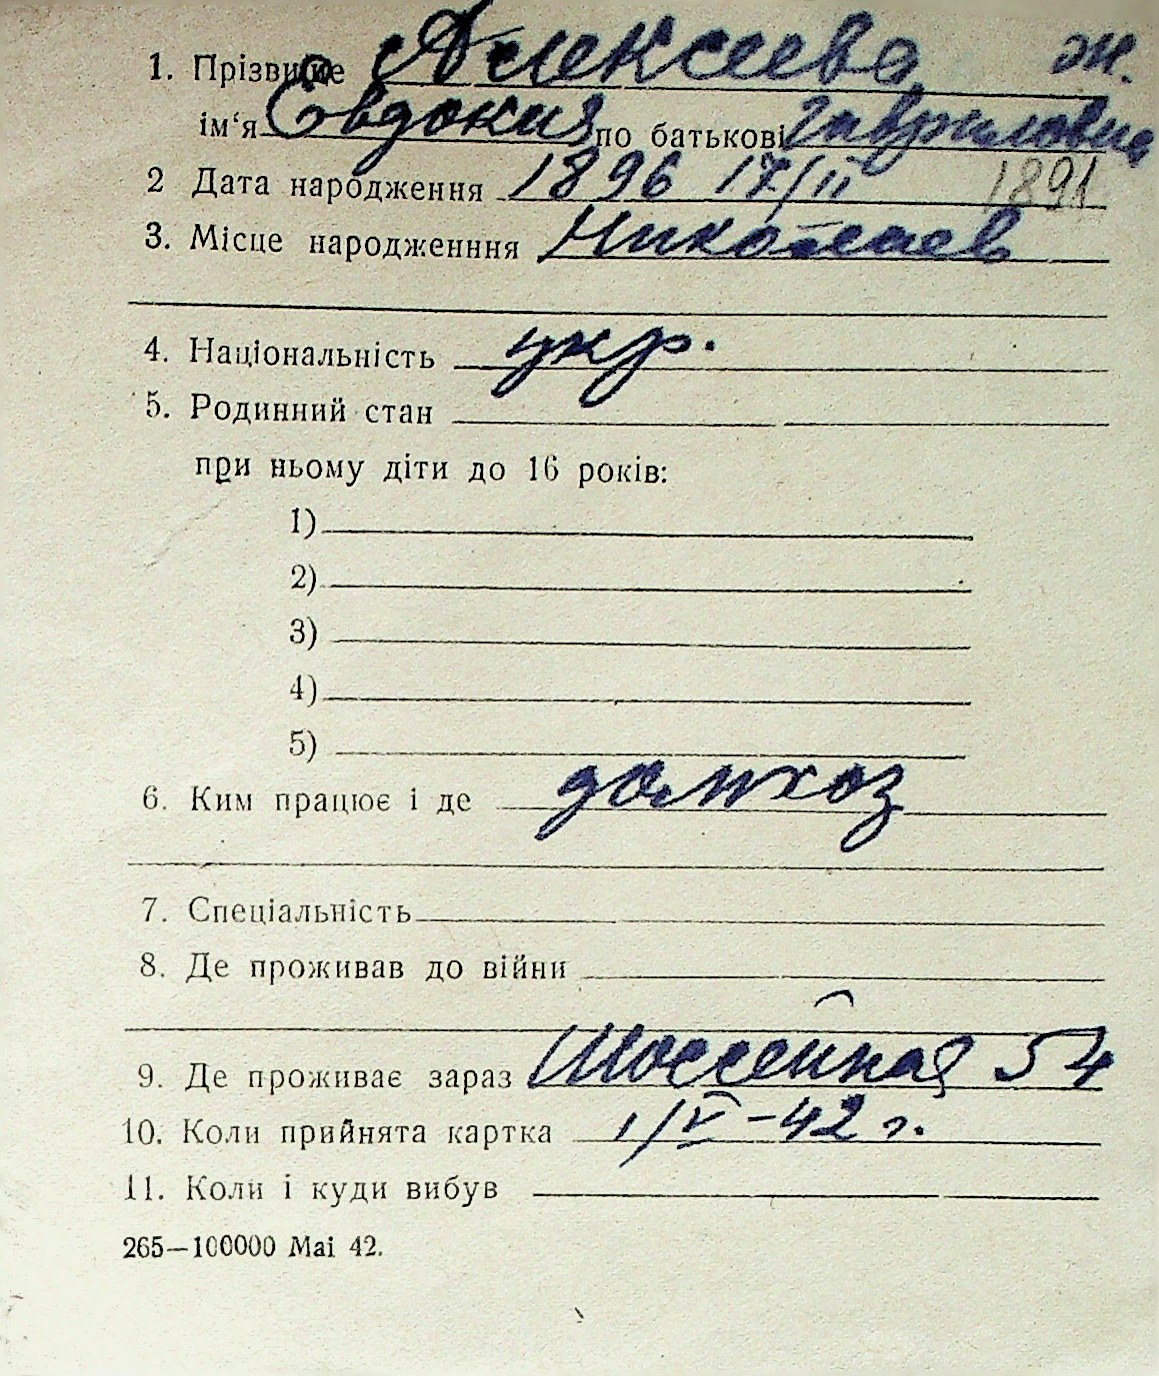 1. Прізвище Алексеева ж.
ім‘я Евдокия по батькові Гавриловна
2 Дата народження 1896 17/II 1891
3. Місце народженння Николаев
4. Національність укр.
5. Родинний стан
при ньому діти до 16 років:
1)
2)
3)
4)
5)
6. Ким працює і де домхоз
7. Спеціальність
8. Де проживав до війни
9. Де проживає зараз Шоссейная 54
10. Коли прийнята картка 1/V-42 г.
11. Коли і куди вибув
265—100000 Маі 42.